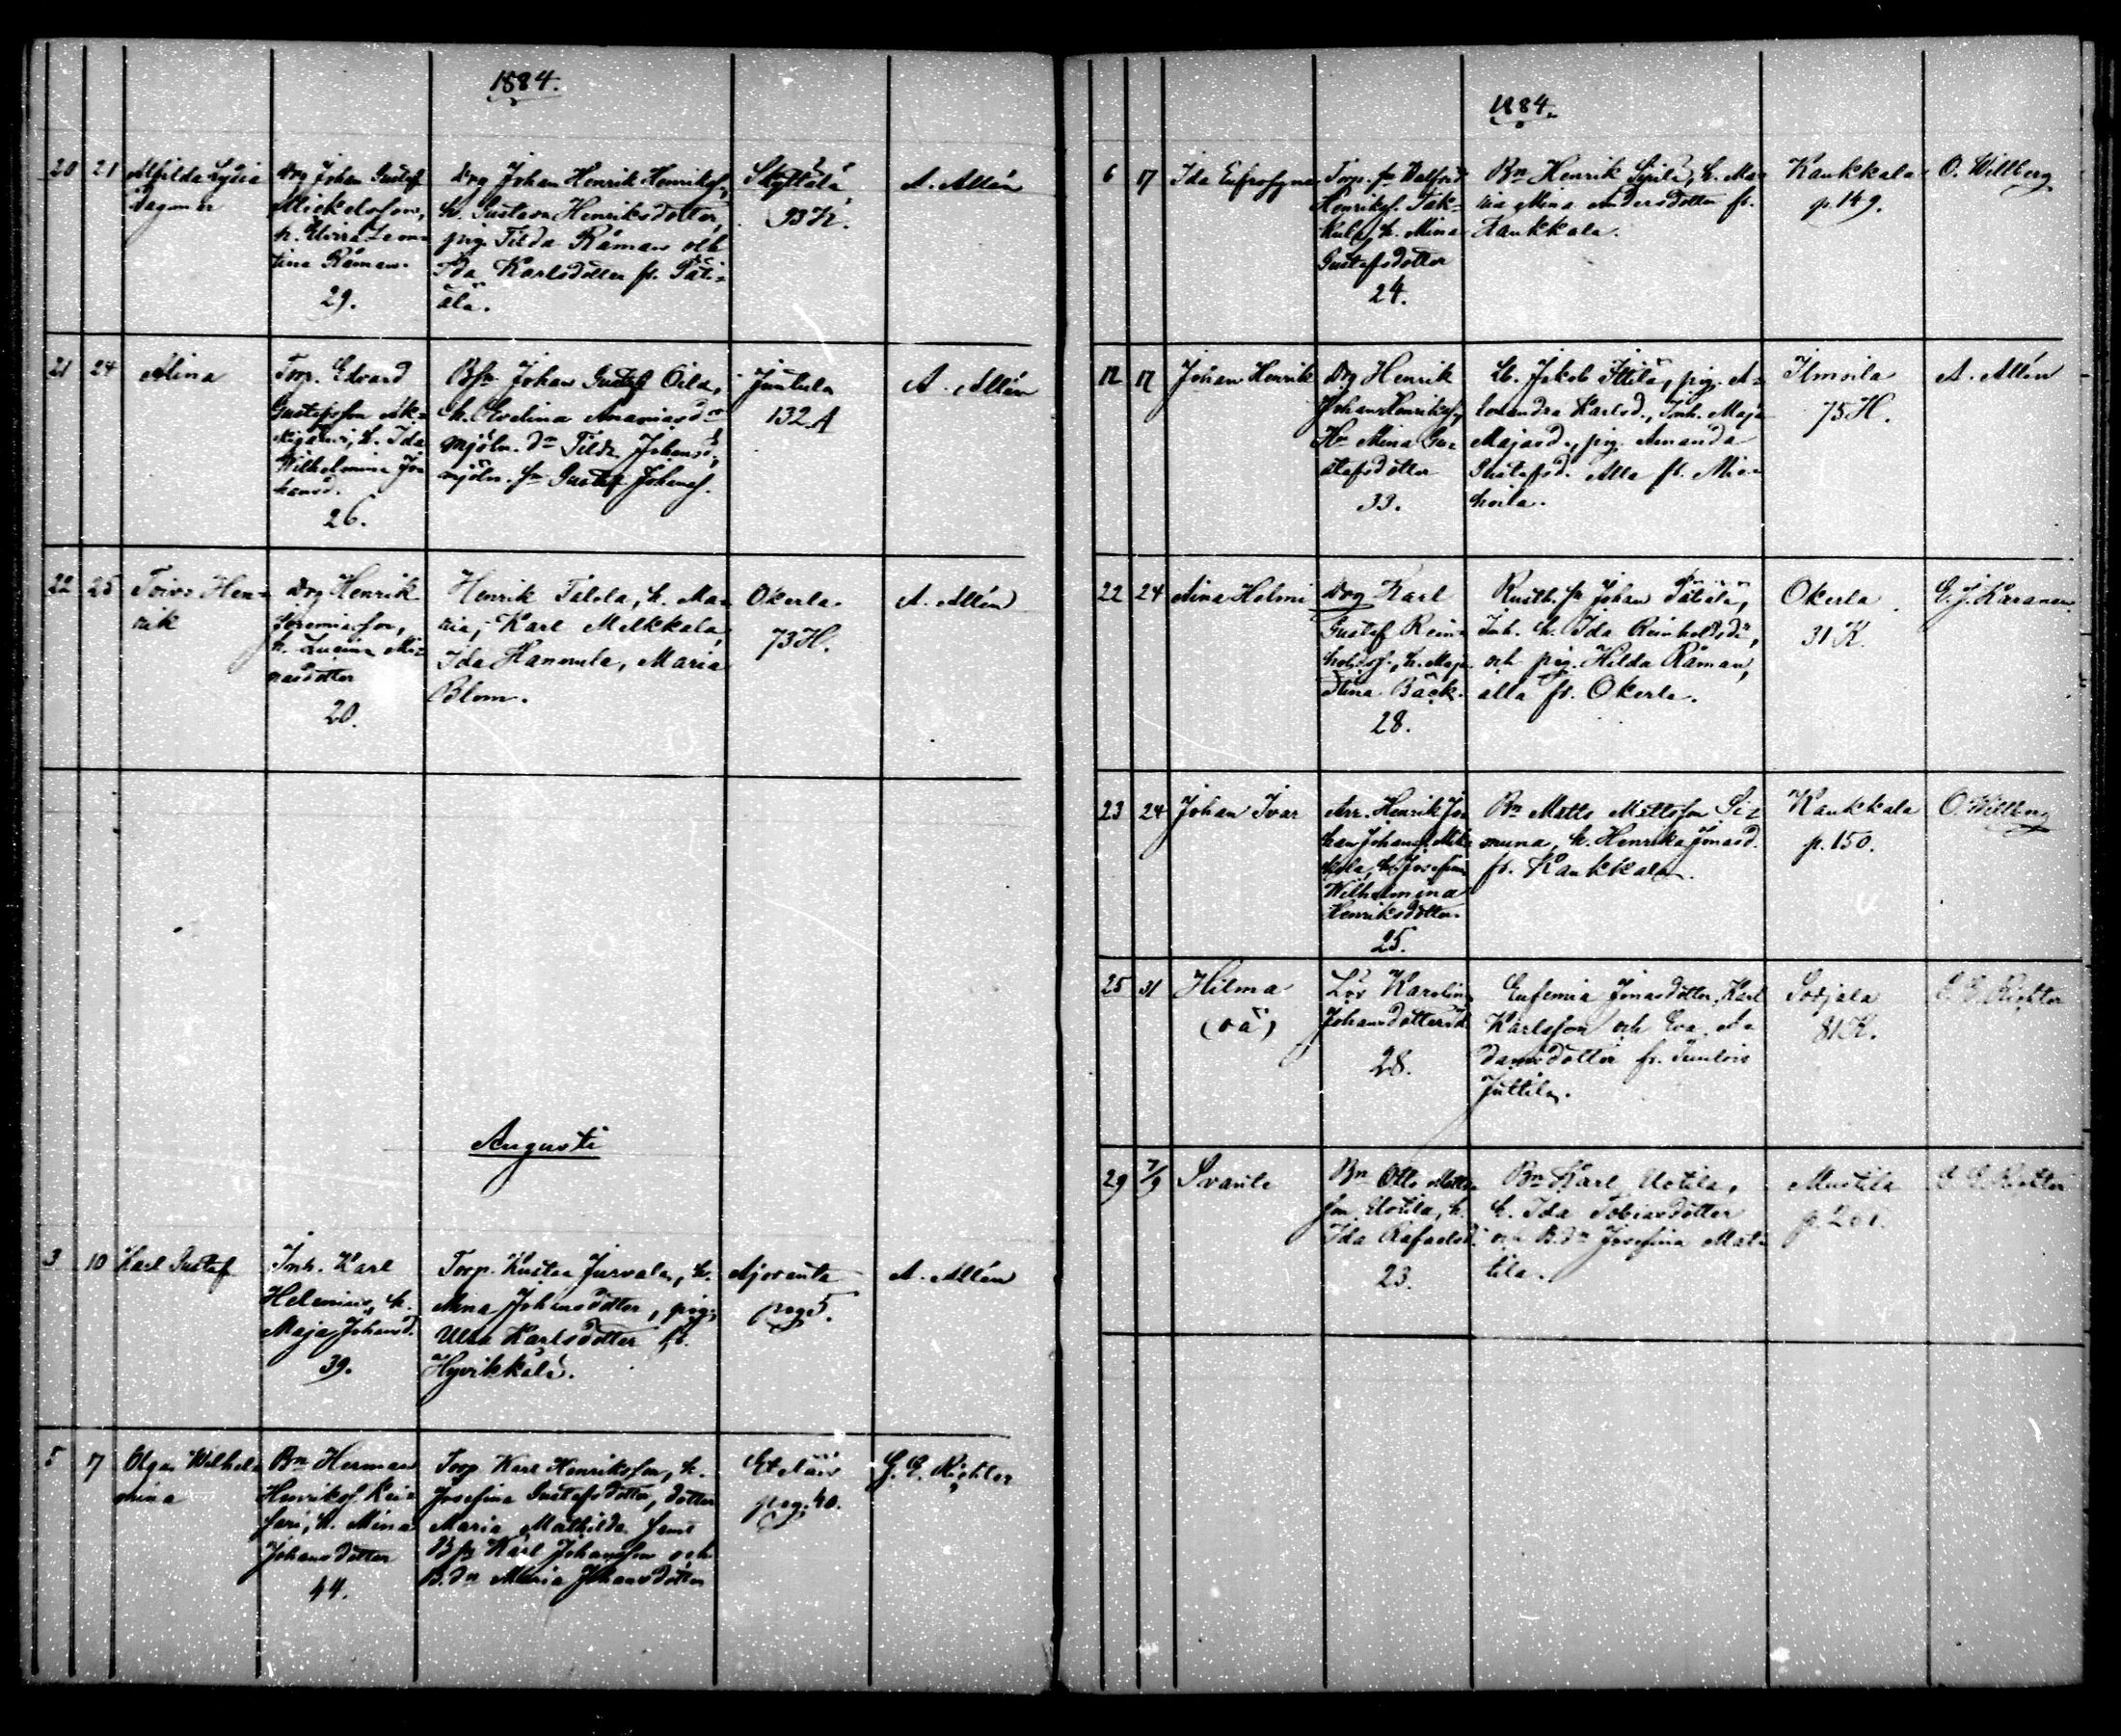 1884.
20 21 Alfilda Lydia
Dagmar
Drg Johan Gustaf
Mickelsson,
h. Elvira Leon=
tina Råman.
29.
Drg Johan Henrik Henriksf.,
h. Gustava Henriksdotter,
pig. Tilda Råman och
Ida Karlsdotter fr. Päti=
älä.
Skyttälä
93 K.
A. Allén
21 24 Alina
Torp. Edvard
Gustafsson
h. Ida
Wilhelmina Jo
hansd.
26.
Bsn Johan Gustaf Oila,
h. Evelina Ananiasd.
mjöln. dr Tilda Johansd.,
mjöln. sn Gustaf Johansf.
Juntula
132 A
A. Allén
22 25 Toivo Hen=
rik
Drg Henrik
Jeremiasson,
h.
20.
Henrik Talola, h. Ma=
ria, Karl Melkkala,
Ida Hannula, Maria
Blom.
Okerla
73 H.
A. Allén
Augusti
3 10 Karl Gustaf
Inh. Karl
Helenius, h.
Maja Johansd.
39.
Torp. Kustaa Jurvala, h.
Mina Johansdotter, pig.
Ulla Karlsdotter fr.
Hyvikkälä.
Ajosenta
pag 5.
A. Allén
5 7 Olga Wilhel=
mina
Bn Herman
Henriksf.
h. Mina
Johansdotter
44.
Torp. Karl Henriksson, h.
Josefina Gustafsdotter, dotter
Maria Mathilda samt
Bsn Karl Johansson och
B.dr Maria Johansdotter
pag. 40.
G. E. Richter
1884.
6 17 Ida Eufrosyne
Torp. sn Walfrid
Henriksf.
h. Mina
Gustafsdotter
24.
Bn Henrik Sipilä, h. Ma=
ria Mina Andersdotter fr.
Kaukkala.
Kaukkala
p. 149.
O. Willberg
12 17 Johan Henrik
Drg Henrik
Johan Henriksf.,
Hu Mina Gu=
stafsdotter
33.
Lb. Jakob Ittilä, pig. A=
lexandra Karlsd., Inh. Maja
Majasd., pig. Amanda
Gustafsd. Alla fr. Mie=
hoila.
Ilmoila
75 H.
A. Allén
22 24 Aina Helmi
Drg Karl
Gustaf Rein=
holdsf., h. Maja
Stina Bäck.
28.
Rusth. sn Johan Pätiälä,
Inh. h. Ida Reinholdsdr,
och pig. Hilda Råman,
alla fr. Okerla.
Okerla
31 K.
E. J. Karanen
23 24 Johan Ivar
Arr. Henrik Jo
han Johansf.
h. Josefina
Wilhelmina
Henriksdotter.
25.
Bn Matts Mattsson Si=
muna, h. Henrika Jonasd.
fr. Kaukkala.
Kaukkala
p. 150.
O. Willberg
25 31 Hilma
(oä)
Lös Karolina
Johansdotters
28.
Eufemia Jonasdotter, Karl
Karlsson och Eva A=
damsdotter fr. Tuulois
Juttila.
Sorjala
81 K.
G. E. Richter
29 7/9 Svante
Bn Otto Matts=
son Uotila, h.
Ida Rafaelsd.
23.
Bn Karl Uotila,
h. Ida Tobiasdotter
och B.dr Josefina Mat=
tila.
Mustila
p. 201.
G. E. Richter